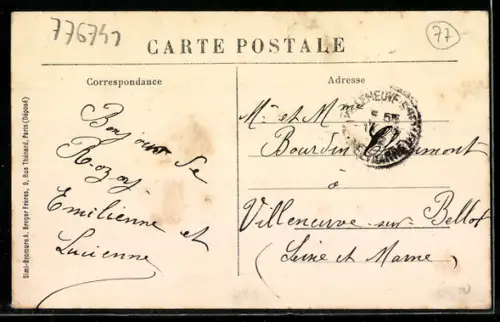 776741
77
CARTE POSTALE
Correspondance
Adresse
Simi-Bromure A. Breger Frères, 9, Rue Thénard, Paris (Déposé)
Bonjour de
Rozoy
Emilienne et
Lucienne
Mr et Mme
Bourdin
à
Villeneuve-sur-Bellot
Seine et Marne